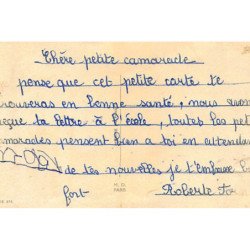 Chère petite camarade
pense que cet petite carte te
rouveras en bonne santé, nous
eçue ta lettre à l'école, toutes les pet
marades pensent bien a toi en attendan
de tes nouvelles je t'embrasse
fort Roberte
M. D.
PARIS